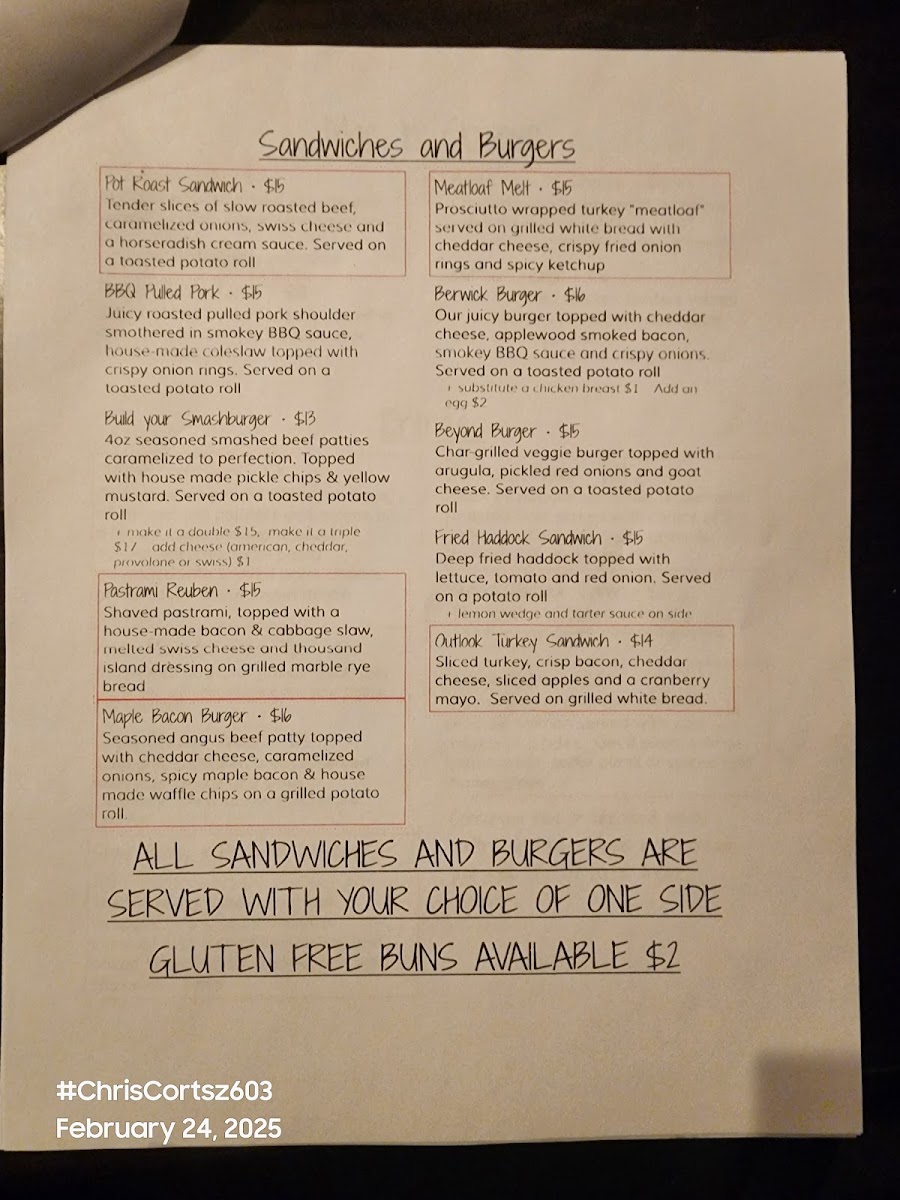 Sandwiches and Burgers
Pot Roast Sandwich · $15
Tender slices of slow roasted beef,
caramelized onions, swiss cheese and
a horseradish cream sauce. Served on
a toasted potato roll
BBQ Pulled Pork · $15
Juicy roasted pulled pork shoulder
smothered in smokey BBQ sauce,
house-made coleslaw topped with
crispy onion rings. Served on a
toasted potato roll
Build your Smashburger · $13
4oz seasoned smashed beef patties
caramelized to perfection. Topped
with house made pickle chips & yellow
mustard. Served on a toasted potato
roll
+ make it a double $15, make it a triple
$17 add cheese (american, cheddar,
provolone or swiss) $1
Pastrami Reuben · $15
Shaved pastrami, topped with a
house-made bacon & cabbage slaw,
melted swiss cheese and thousand
island dressing on grilled marble rye
bread
Maple Bacon Burger · $16
Seasoned angus beef patty topped
with cheddar cheese, caramelized
onions, spicy maple bacon & house
made waffle chips on a grilled potato
roll.
Meatloaf Melt · $15
Prosciutto wrapped turkey "meatloaf"
served on grilled white bread with
cheddar cheese, crispy fried onion
rings and spicy ketchup
Berwick Burger · $16
Our juicy burger topped with cheddar
cheese, applewood smoked bacon,
smokey BBQ sauce and crispy onions.
Served on a toasted potato roll
+ substitute a chicken breast $1 Add an
egg $2
Beyond Burger · $15
Char-grilled veggie burger topped with
arugula, pickled red onions and goat
cheese. Served on a toasted potato
roll
Fried Haddock Sandwich · $15
Deep fried haddock topped with
lettuce, tomato and red onion. Served
on a potato roll
+ lemon wedge and tarter sauce on side
Outlook Turkey Sandwich · $14
Sliced turkey, crisp bacon, cheddar
cheese, sliced apples and a cranberry
mayo. Served on grilled white bread.
ALL SANDWICHES AND BURGERS ARE
SERVED WITH YOUR CHOICE OF ONE SIDE
GLUTEN FREE BUNS AVAILABLE $2
#ChrisCortsz603
February 24, 2025